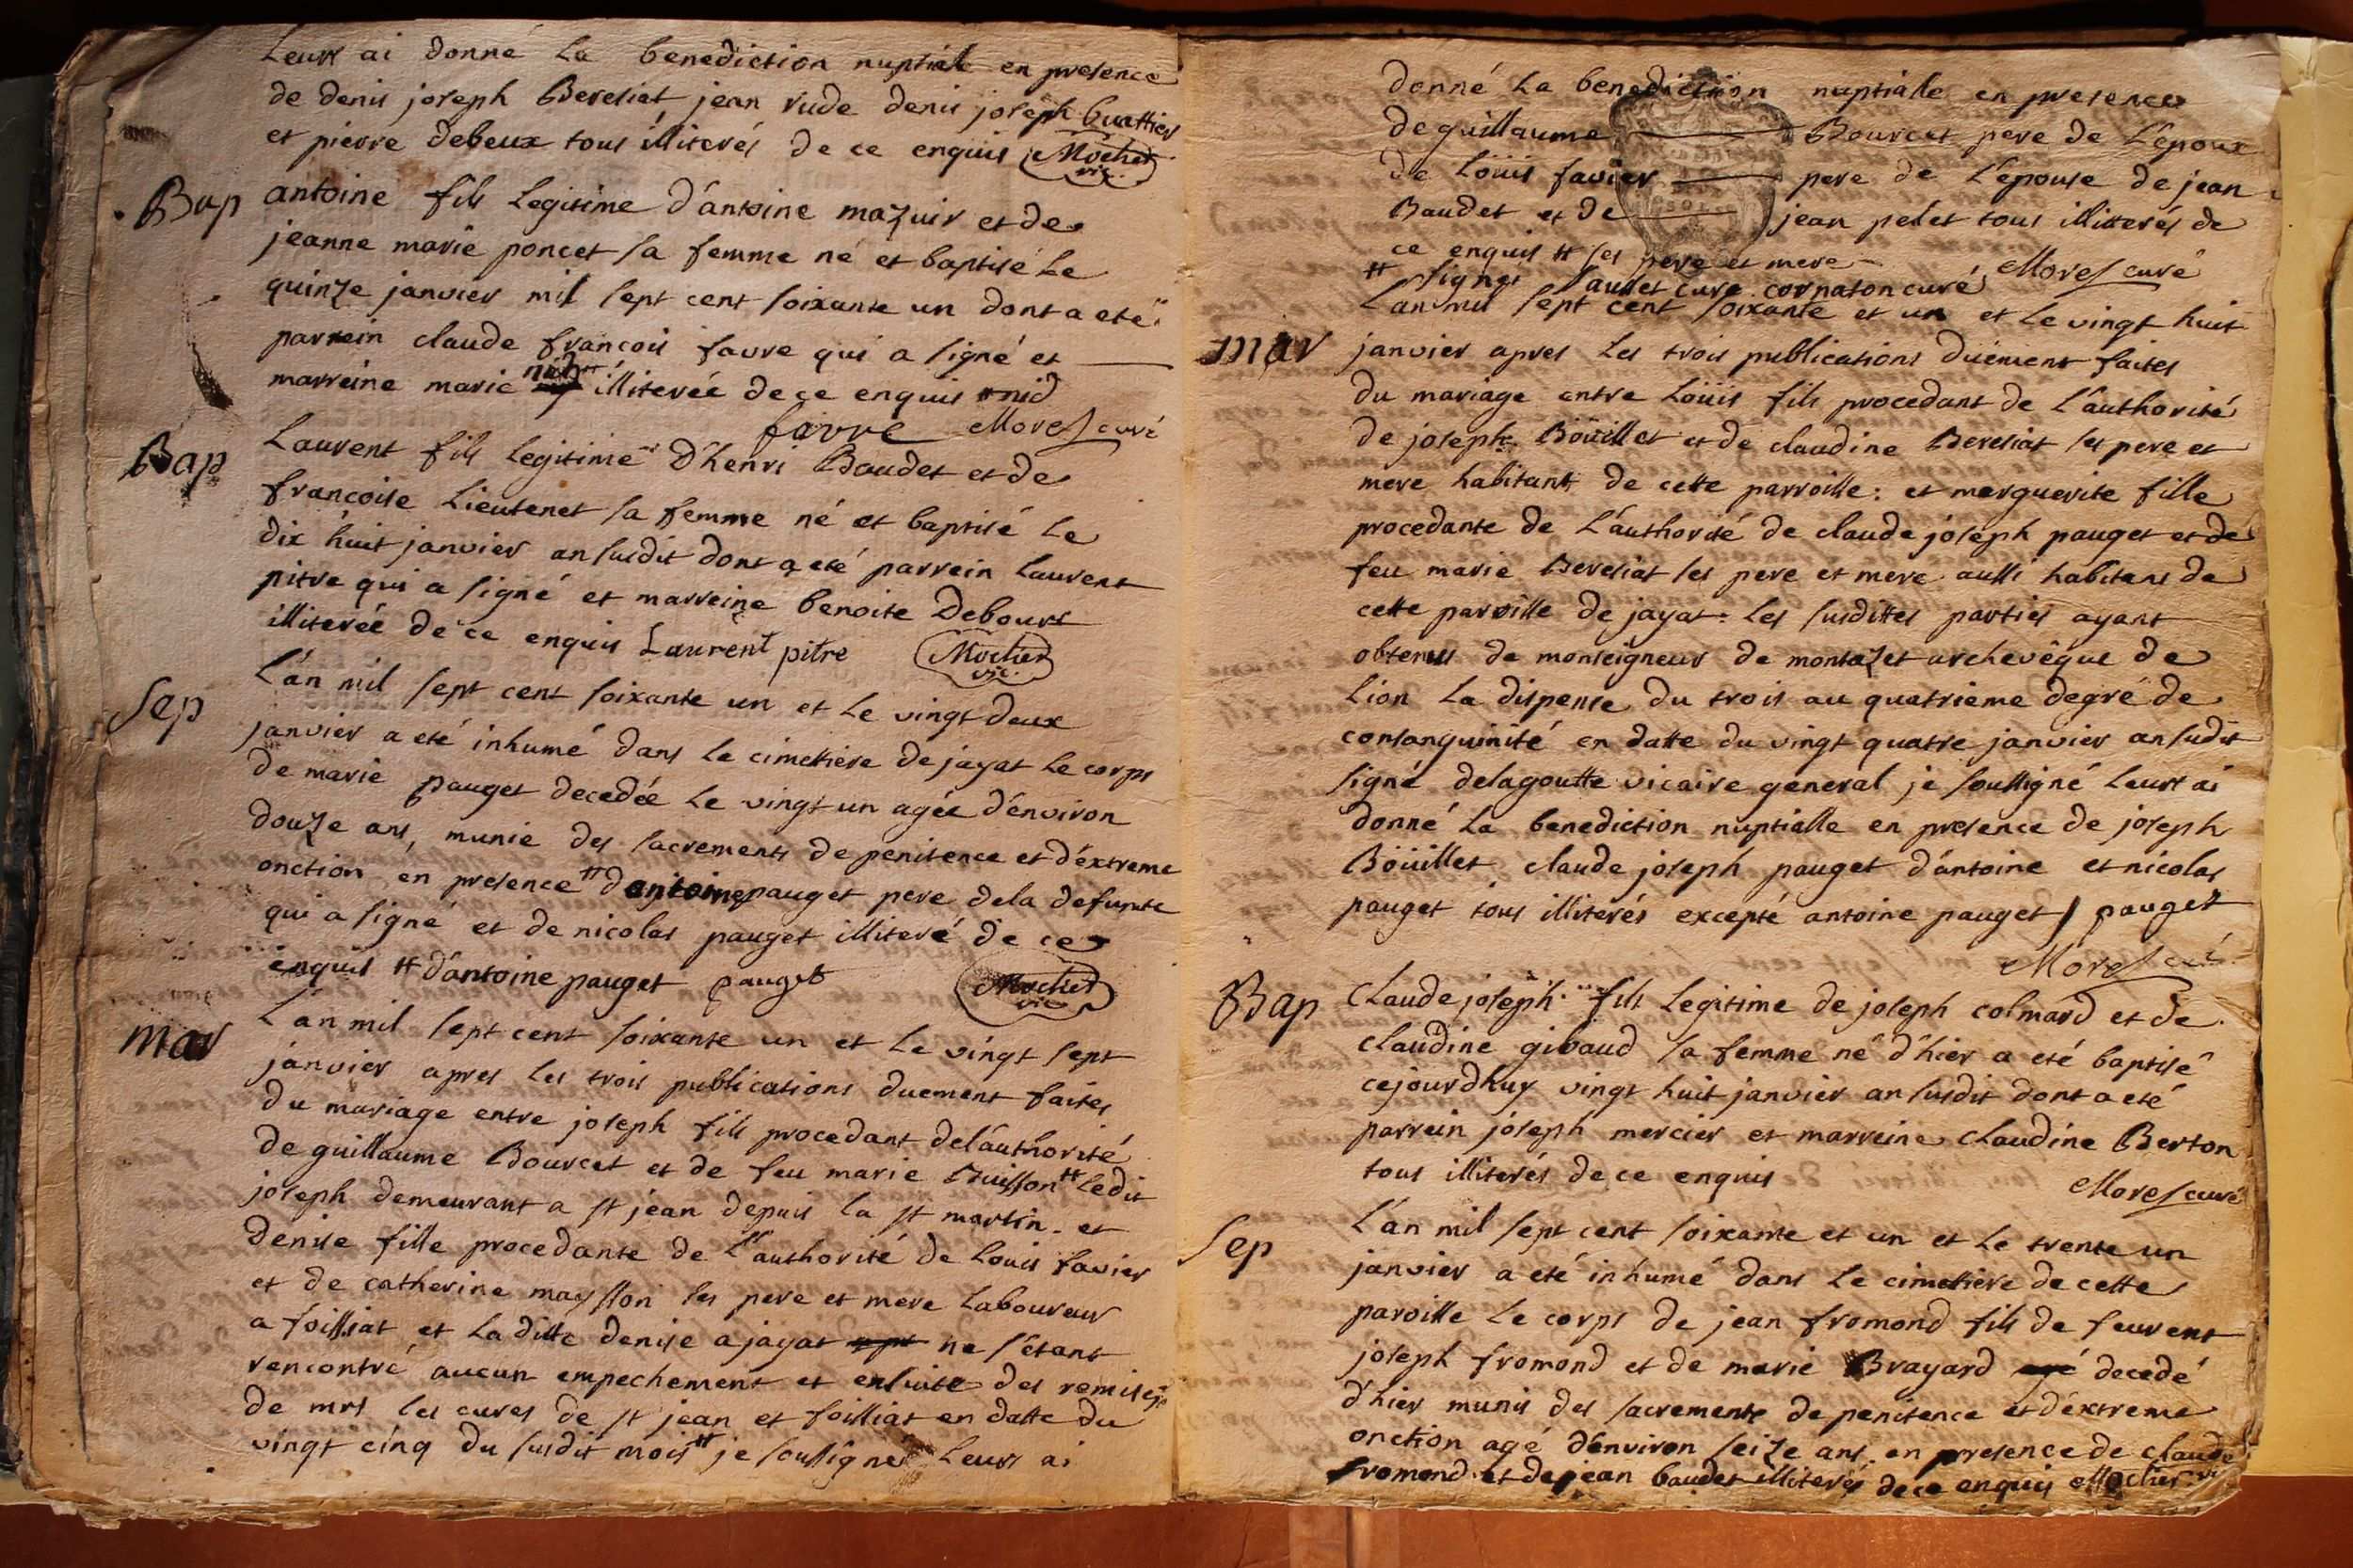 Leurs ai donné La benediction nuptiale en presence
de denis joseph Bereliat jean rude denis joseph buattier
et pierre debeux tous illiterés de ce enquis Mochet
vic.
Bap
antoine fils Legitime d'antoine mazuir et de
jeanne marie poncet sa femme né et baptisé Le
quinze janvier mil sept cent soixante un dont a eté
parrein claude françois favre qui a signé et
marreine marie illiterée de ce enquis # nid
favre Morel curé
Bap
Laurent fils legitime d'henri Baudet et de
françoise Lieutenet sa femme né et baptisé Le
dix huit janvier an susdit dont a eté parrein laurent
pitre qui a signé et marreine benoite Debourt
illiterée de ce enquis Laurent pitre Mochet
vic.
Sep
L'an mil sept cent soixante un et Le vingt deux
janvier a eté inhumé dans Le cimettiere de jayat Le corps
de marie pauget decedée Le vingt un agée d'environ
douze ans, munie des sacrements de penitence et d'extreme
onction en presence # d'antoine pauget pere de la defunte
qui a signé et de nicolas pauget illiteré de ce
enquis # d'antoine pauget pauget Mochet
vic.
mar
L'an mil sept cent soixante un et Le vingt sept
janvier apres les trois publications duement faites
du mariage entre joseph fils procedant de l'authorité
de guillaume Bourcet et de feu marie Buisson # Ledit
joseph demeurant a st jean depuis la st martin. et
denise fille procedante de L'authorité de Louis favier
et de catherine maysson ses pere et mere Laboureur
a foissiat et La ditte denise a jayat ne s'étant
rencontré aucun empechement et ensuite des remises
de mrs les cures de st jean et foissiat en datte du
vingt cinq du susdit mois # je soussigné Leurs ai
donné La benediction nuptialle en presence
de guillaume Bourcet pere de L'epoux
de Loüis favier pere de L'epouse de jean
Baudet et de jean pelet tous illitterés de
ce enquis # ses pere et mere Morel curé
# signes curé cornaton curé
mar
L'an mil sept cent soixante et un et Le vingt huit
janvier apres Les trois publications duëment faites
du mariage entre Loüis fils procedant de L'authorité
de joseph Böüillet et de claudine Bereliat ses pere et
mere habitants de cette parroisse: et marguerite fille
procedante de L'authorité de claude joseph pauget et de
feu marie Bereliat ses pere et mere aussi habitans de
cette paroisse de jayat: Les susdittes parties ayant
obtenus de monseigneur de montazet archevêque de
Lion La dispense du trois au quatrieme degré de
consanguinité en datte du vingt quatre janvier an susdit
signé delagoutte vicaire general je soussigné Leurs ai
donné La benediction nuptialle en presence de joseph
Böüillet claude joseph pauget d'antoine et nicolas
pauget tous illiterés excepté antoine pauget / pauget
Morel curé
Bap
Claude joseph fils Legitime de joseph colmard et de
claudine gibaud sa femme né d'hier a eté baptisé
cejourdhuy vingt huit janvier an susdit dont a eté
parrein joseph mercier et marreine claudine Berton
tous illiterés de ce enquis
Morel curé
Sep
L'an mil sept cent soixante et un et Le trente un
janvier a eté inhumé dans Le cimettiere de cette
paroisse Le corps de jean fromond fils de
joseph fromond et de marie Brayard decedé
d'hier munis des sacrements de penitence et d'extreme
onction agé d'environ seize ans en presence de claude
fromond et de jean baudet illiterés de ce enquis Mochet vi